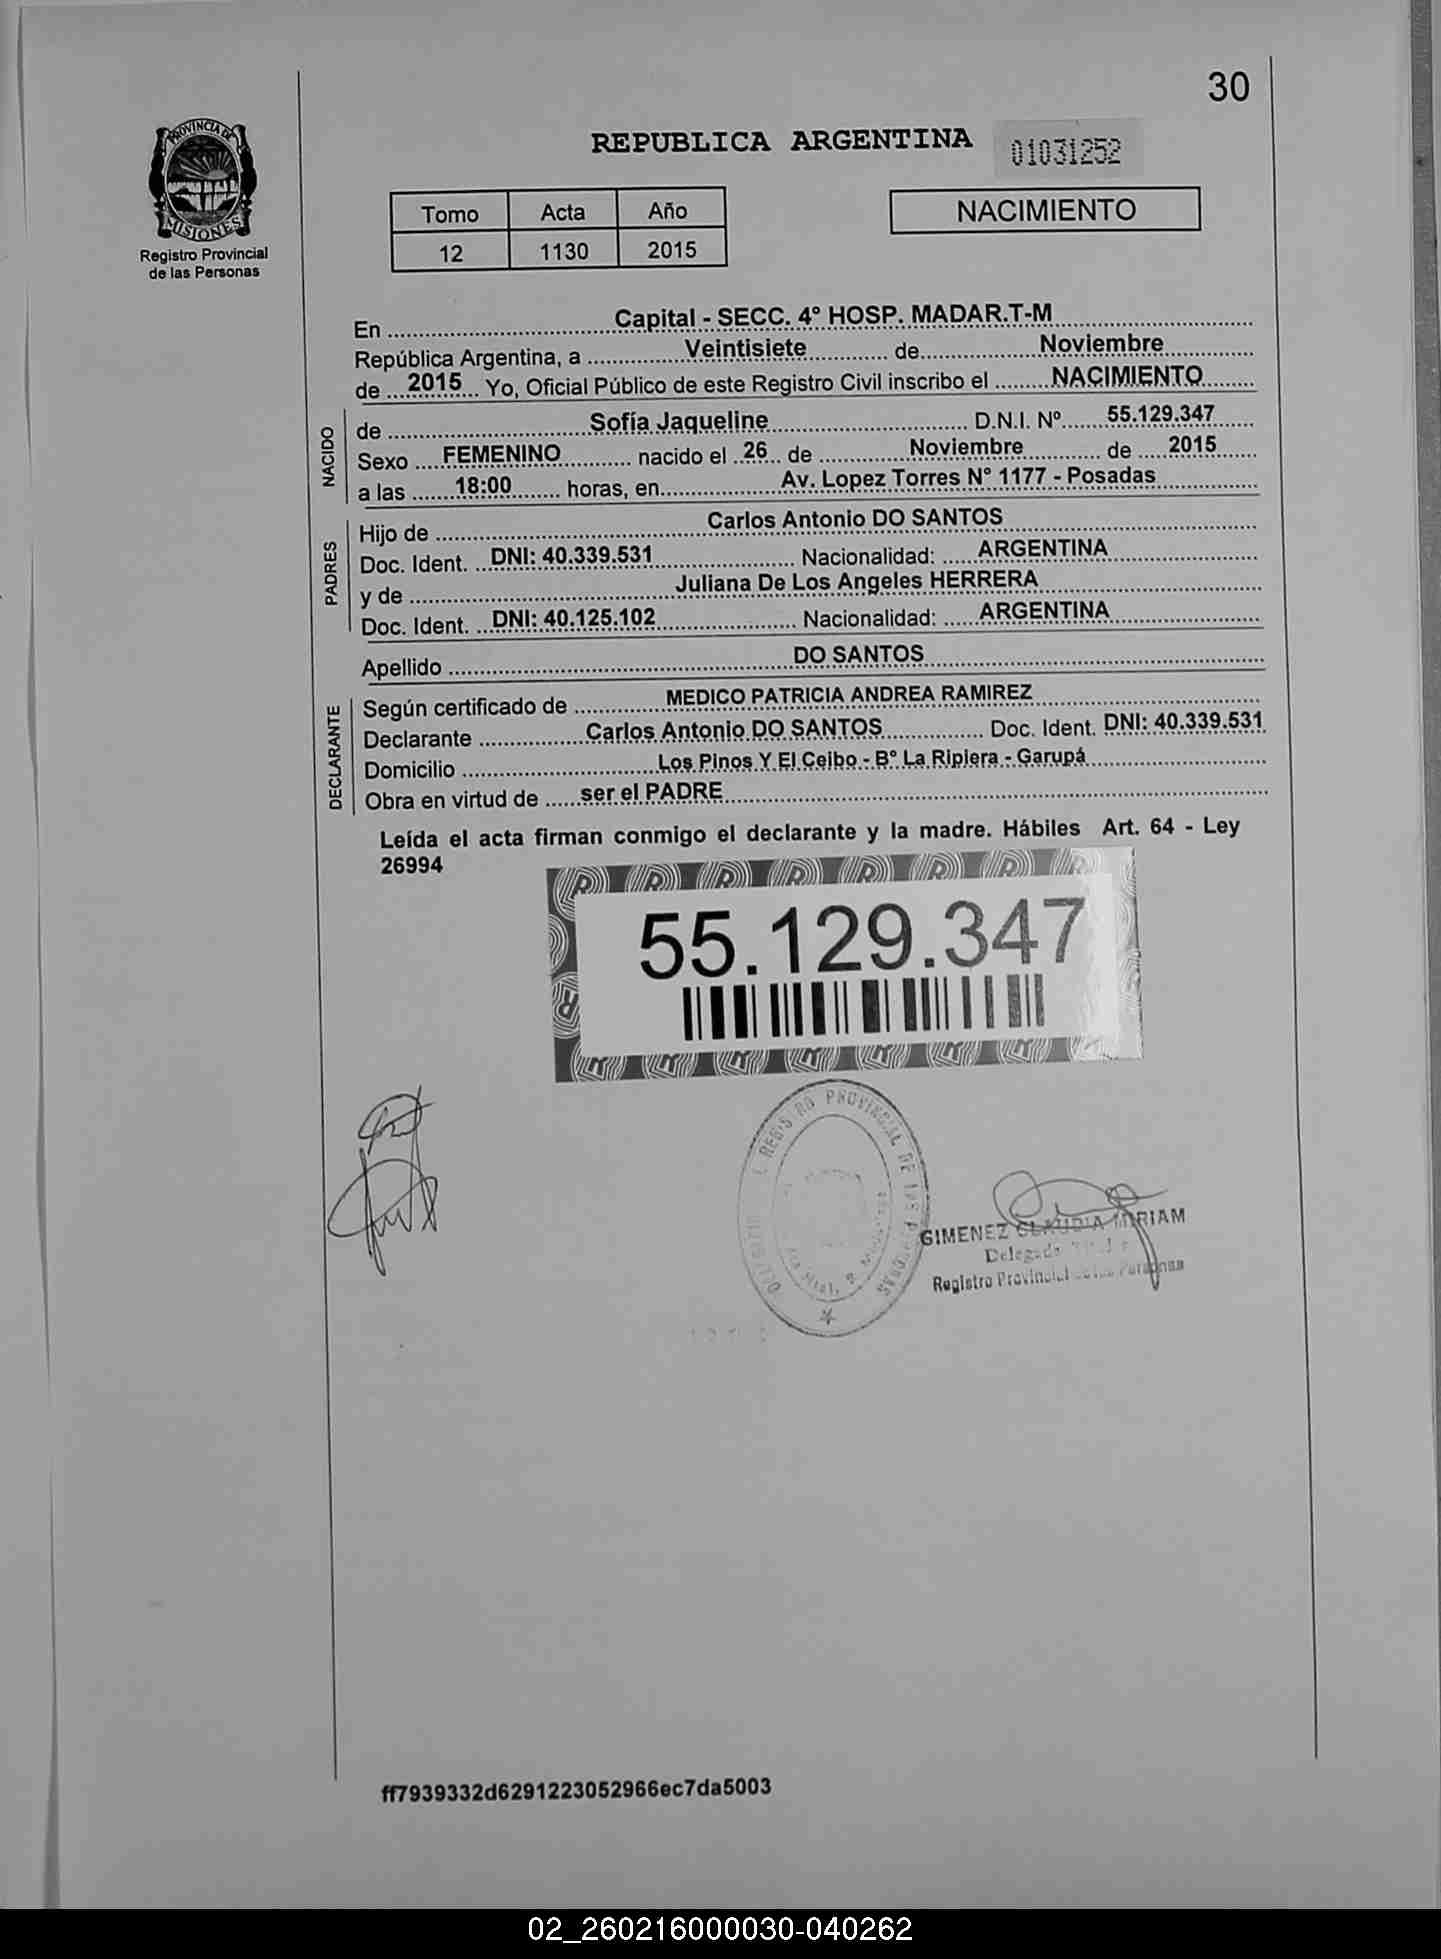 30
PROVINCIA DE
MISIONES
Registro Provincial
de las Personas
REPUBLICA ARGENTINA
01031252
Tomo Acta Año
12 1130 2015
NACIMIENTO
En Capital - SECC. 4º HOSP. MADAR.T-M
República Argentina, a Veintisiete de Noviembre
de 2015 Yo, Oficial Público de este Registro Civil inscribo el NACIMIENTO
NACIDO
de Sofía Jaqueline D.N.I. Nº 55.129.347
Sexo FEMENINO nacido el 26 de Noviembre de 2015
a las 18:00 horas, en Av. Lopez Torres N° 1177 - Posadas
PADRES
Hijo de Carlos Antonio DO SANTOS
Doc. Ident. DNI: 40.339.531 Nacionalidad: ARGENTINA
y de Juliana De Los Angeles HERRERA
Doc. Ident. DNI: 40.125.102 Nacionalidad: ARGENTINA
Apellido DO SANTOS
DECLARANTE
Según certificado de MEDICO PATRICIA ANDREA RAMIREZ
Declarante Carlos Antonio DO SANTOS Doc. Ident. DNI: 40.339.531
Domicilio Los Pinos Y El Ceibo - B° La Ripiera - Garupá
Obra en virtud de ser el PADRE
Leída el acta firman conmigo el declarante y la madre. Hábiles Art. 64 - Ley
26994
55.129.347
REGISTRO PROVINCIAL DE LAS PERSONAS
GIMENEZ CLAUDIA MIRIAM
Delegada
Registro Provincial de las Personas
ff7939332d6291223052966ec7da5003
02_260216000030-040262